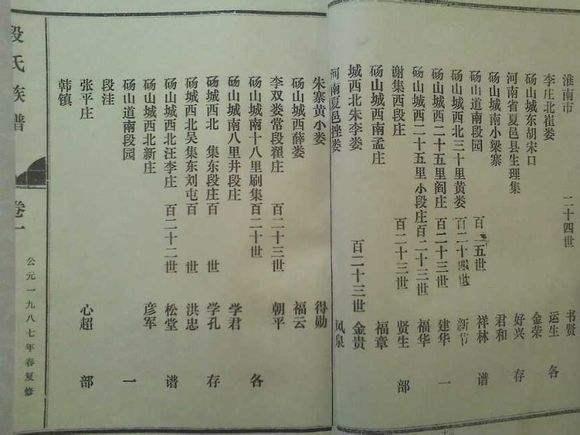 淮南市 二十四世 书贤
李庄北崔娄 运生 各
砀山城东胡宋口 金荣
河南省夏邑县生理集 好兴 存
砀山城南小梁寨 君和
砀山道南段园 百二五世 祥林 谱
砀山城西北三十里黄娄 百二十四世 新节
砀山城西二十五里阎庄 百二十世 建华 一
砀山城西二十五里小段庄百二十世 福华
谢集西段庄 百二十三世 贤生 部
砀山城西南孟庄 福章
城西北朱李娄 百二十三世 金贵
河南夏邑挫娄 凤泉
朱寨黄小娄 得勋
砀山城西薛娄 福云
李双娄常段翟庄 百二十三世 朝平
砀山城南十八里刷集百二十世 各
砀山城南八里井段庄 学君
砀城西北 集东段庄百 世 学孔 存
砀城西北吴集东刘屯百 世 洪忠
砀山城西北汪李庄 百二十二世 松堂 谱
砀山城西北新庄 彦军
砀山道南段园 一
段洼
张平庄 心超 部
韩镇
段氏族谱
卷一
公元一九八七年春夏修